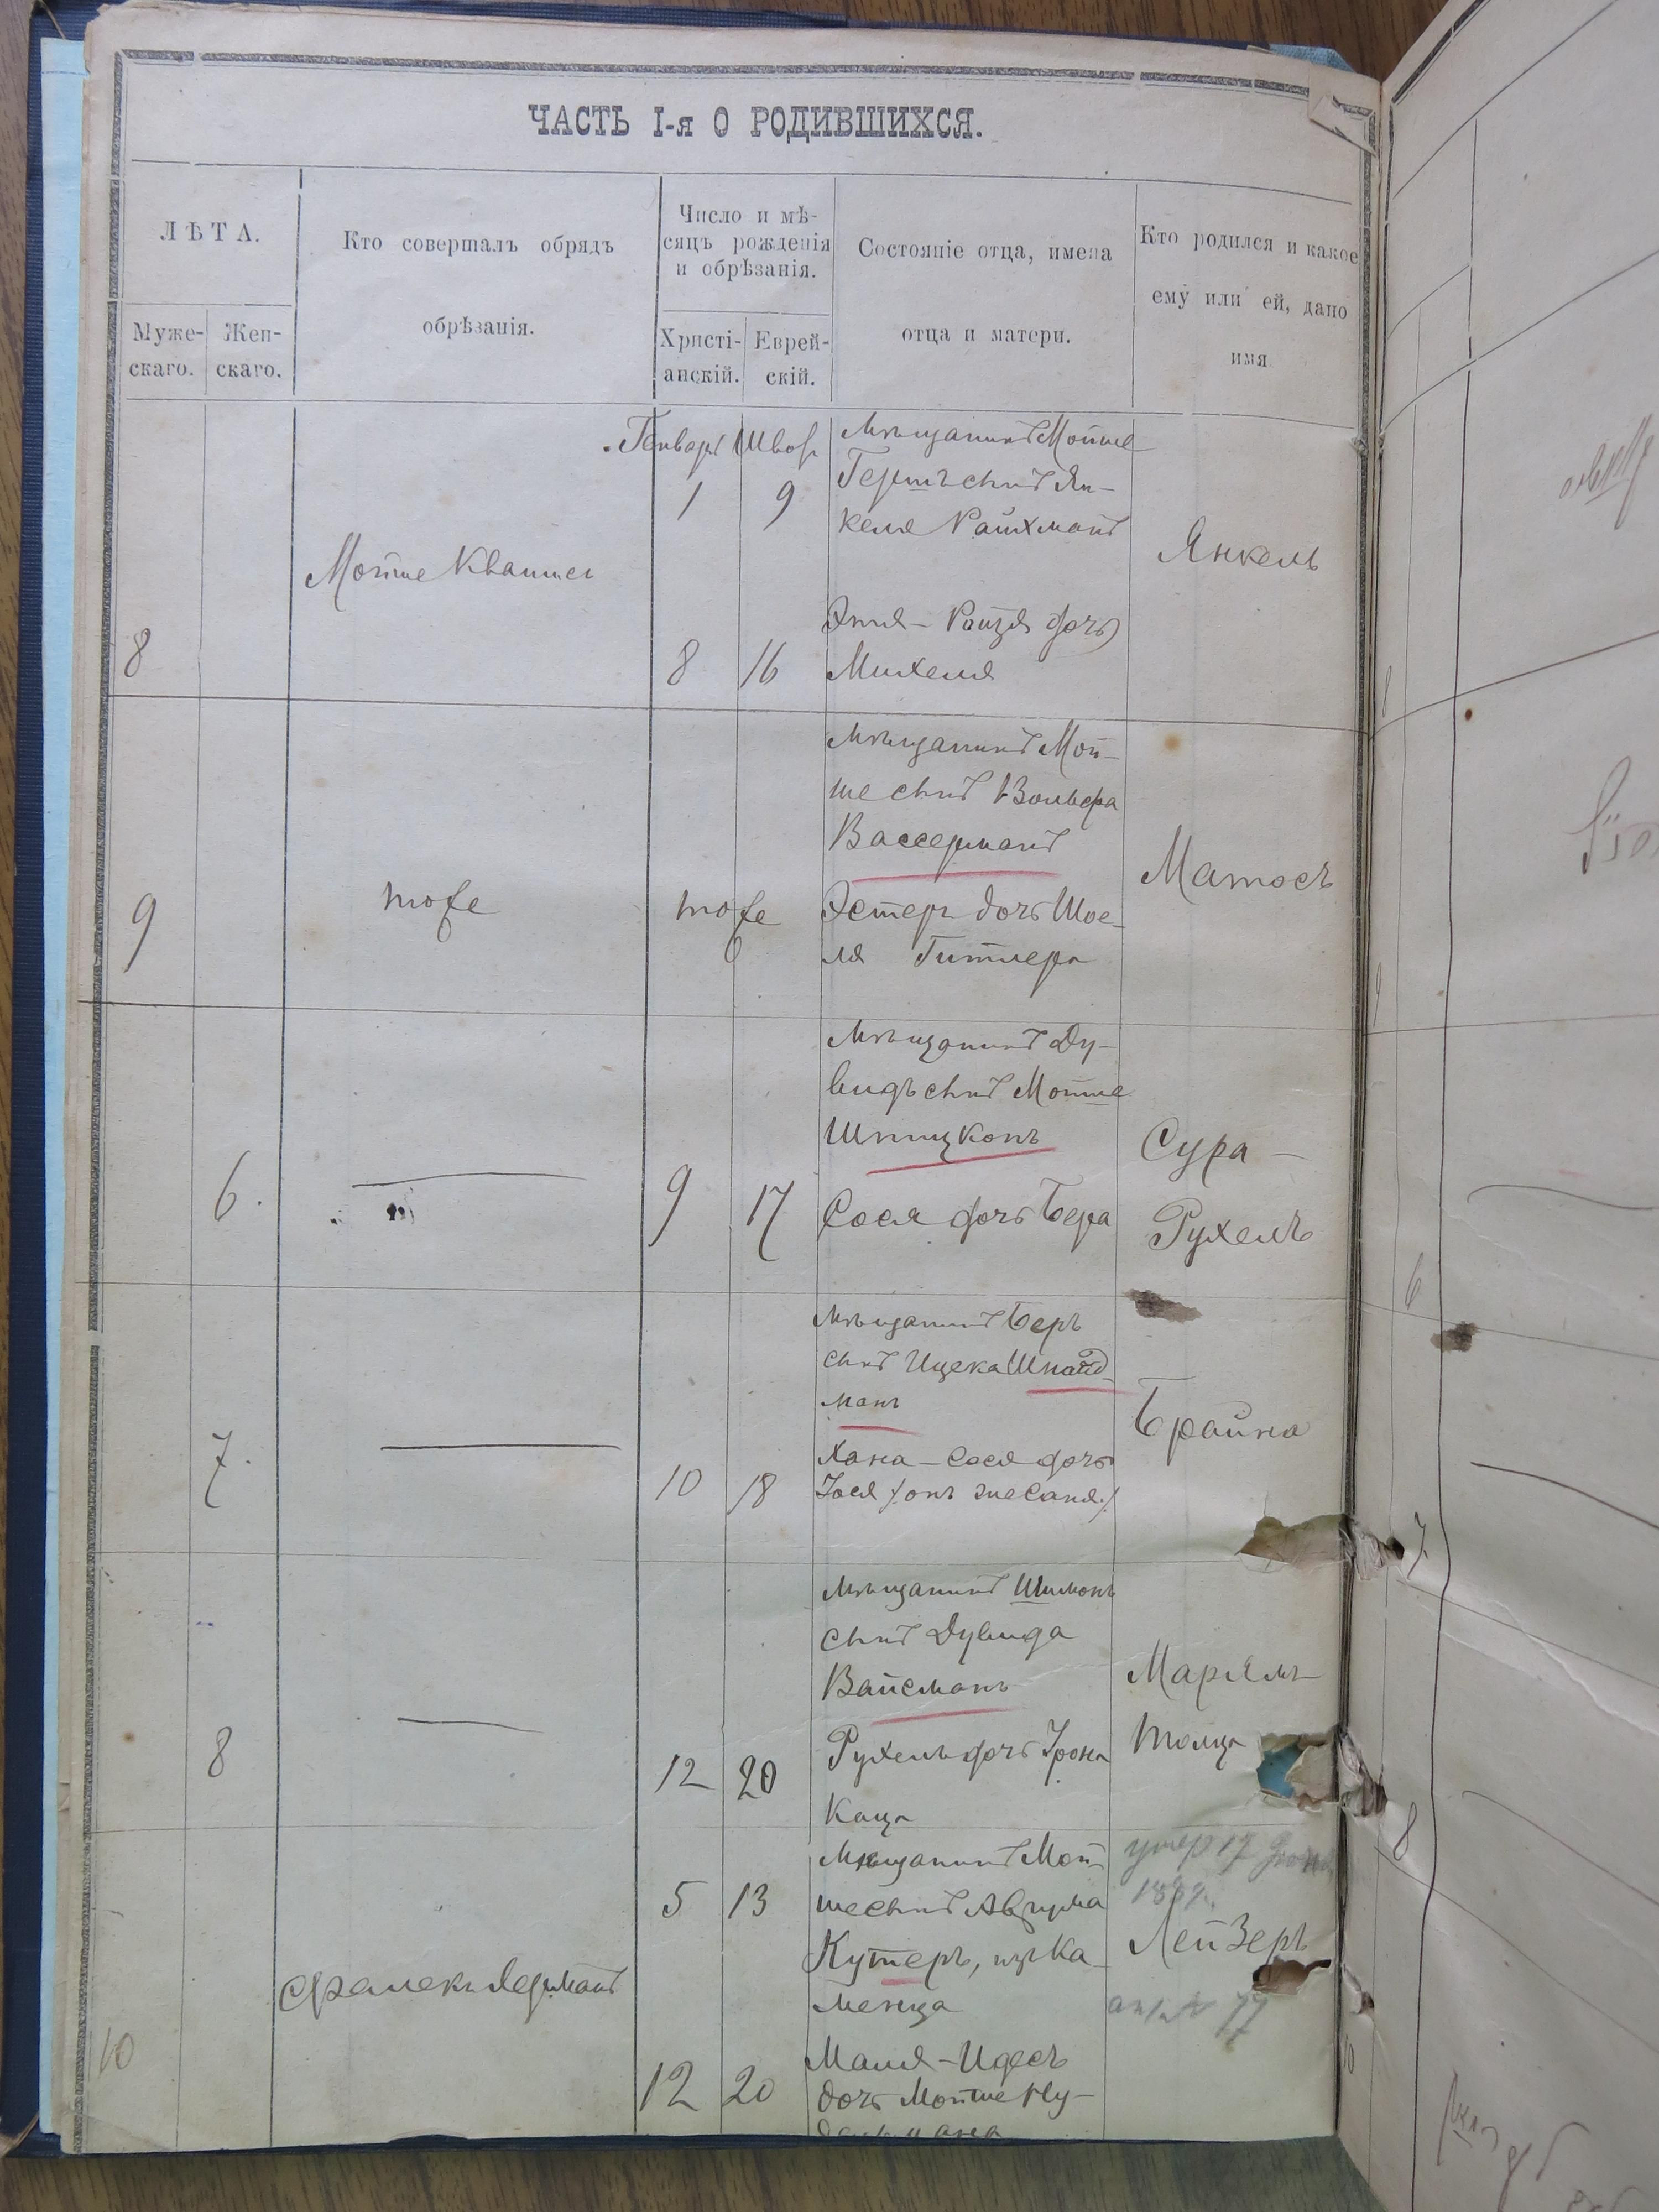 ЧАСТЬ I-я О РОДИВШИХСЯ.
ЛѢТА.
Муже-
скаго.
Жен-
скаго.
Кто совершалъ обрядъ
обрѣзанія.
Число и мѣ-
сяцъ рожденія
и обрѣзанія.
Христі-
анскій.
Еврей-
скій.
Состояніе отца, имена
отца и матери.
Кто родился и какое
ему или ей, дано
имя
8
Мойше
Генварь
1
8
9
16
Мѣщанинъ Мойше
Гершъ сынъ Ян-
келя Райхманъ
Этля-Ройзя дочь
Михеля
Янкель
9
тоже
тоже
Мѣщанинъ Мой-
ше сынъ Вольфа
Вассерманъ
Эстеръ дочь Шое-
ля Гитлера
Матосъ
6.
9
17
Мѣщанинъ Ду-
видъ сынъ Мойше
Шпицконъ
Сося дочь Бера
Сура-
Рухель
7.
10
18
Мѣщанинъ Беръ
сынъ Ицека Шпайд-
манъ
Хана-Сося дочь
Брайна
8
12
20
Мѣщанинъ Шимонъ
сынъ Дувида
Вайсманъ
Рухель дочь Арона
Каца
Марьямъ-
10
5
12
13
20
Мѣщанинъ Мой-
ше сынъ Аврума
Кутеръ, изъ Ка-
менца
Маля-Идесъ
дочь Мойше
умер 17
Лейзеръ
77
6
7
8
10